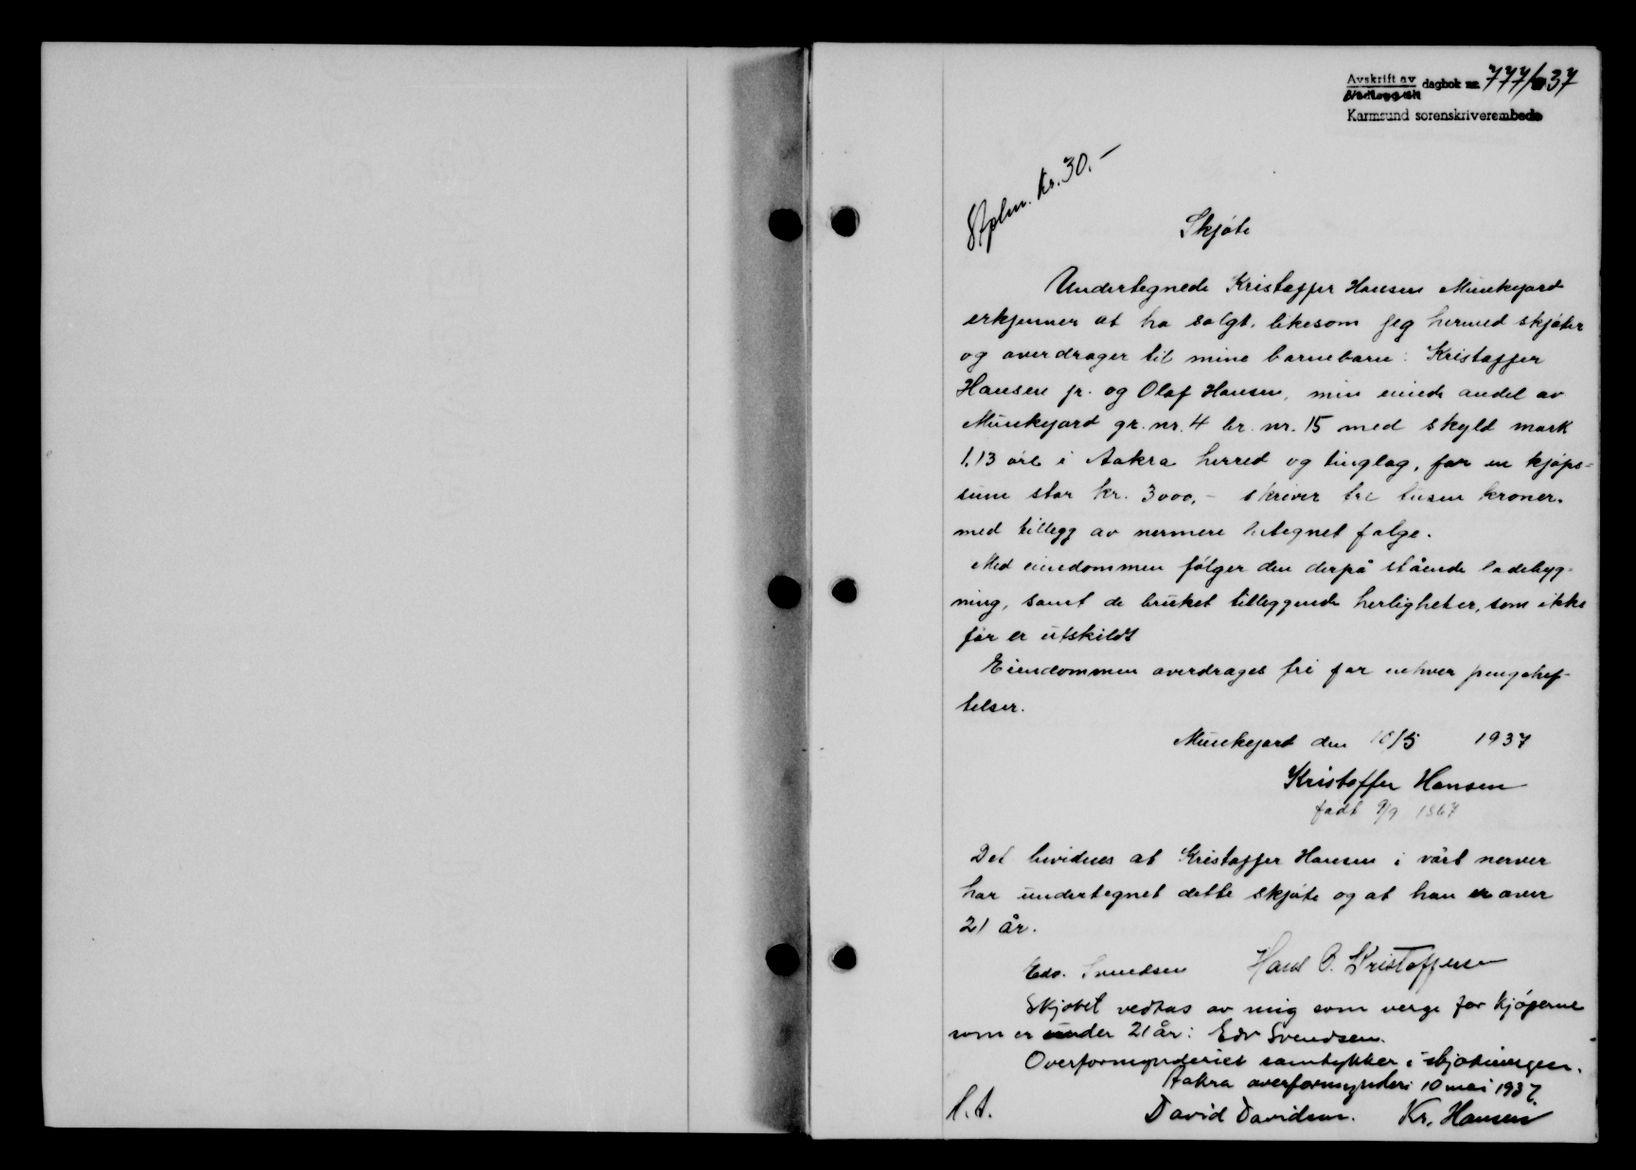 Avskrift av dagbok nr. 777/37
Karmsund sorenskriverembede
Stplm. kr. 30.-
Skjøte
Undertegnede Kristoffer Hansen Munkejord
erkjenner at ha solgt, likesom jeg hermed skjøter
og overdrager til mine barnebarn: Kristoffer
Hansen jr. og Olaf Hansen, min eiende andel av
Munkejord gr. nr. 4 br. nr. 15 med skyld mark
1,13 øre i Aakra herred og tinglag, for en kjøps-
sum stor kr. 3000,- skriver tre tusen kroner.
med tillegg av nermere betegnet følge.
Med eiendommen følger den derpå stående ladebyg-
ning, samt de bruket tilleggende herligheter, som ikke
før er utskildt
Eiendommen overdrages fri for enhver pengehef-
telser.
Munkejord den 10/5 1937
Kristoffer Hansen
født 9/9 1867
Det bevidnes at Kristoffer Hansen i vårt nerver
har undertegnet dette skjøte og at han er over
21 år.
Edv. Svendsen Hans O. Kristoffersen
Skjøtet vedtas av mig som verge for kjøperne
som er under 21 år: Edv Svendsen.
Overformynderiet samtykker i skjøtningen.
Aakra overformynderi 10 mai 1937.
l.s. David Davidsen. Kr. Hansen